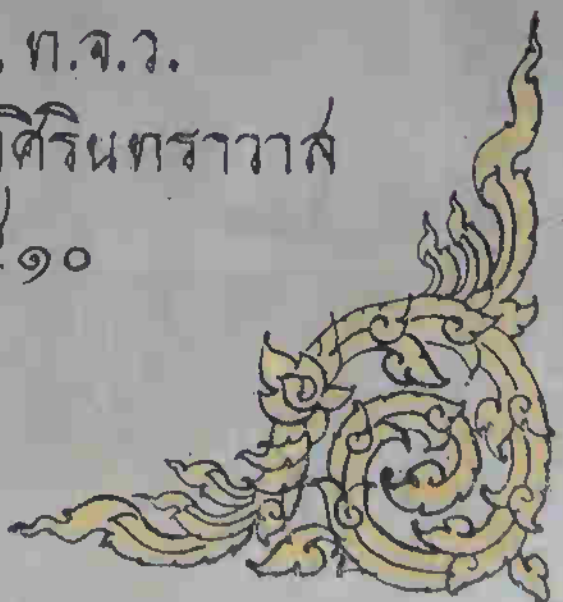 . ท.จ.ว.
ศิรินทราวาส
๑๐